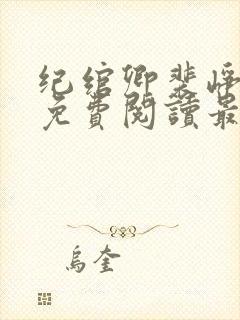 纪绾卿裴
免費閱讀最
烏奎